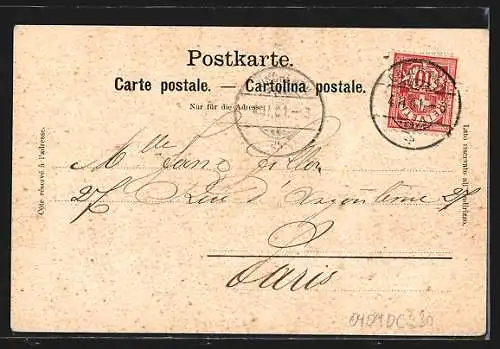 Postkarte.
Carte postale. — Cartolina postale.
Nur für die Adresse.
Côté réservé à l'adresse.
Lato riservato all'indirizzo.
10
Mlle
27 Rue d'Angoulême 27
Paris